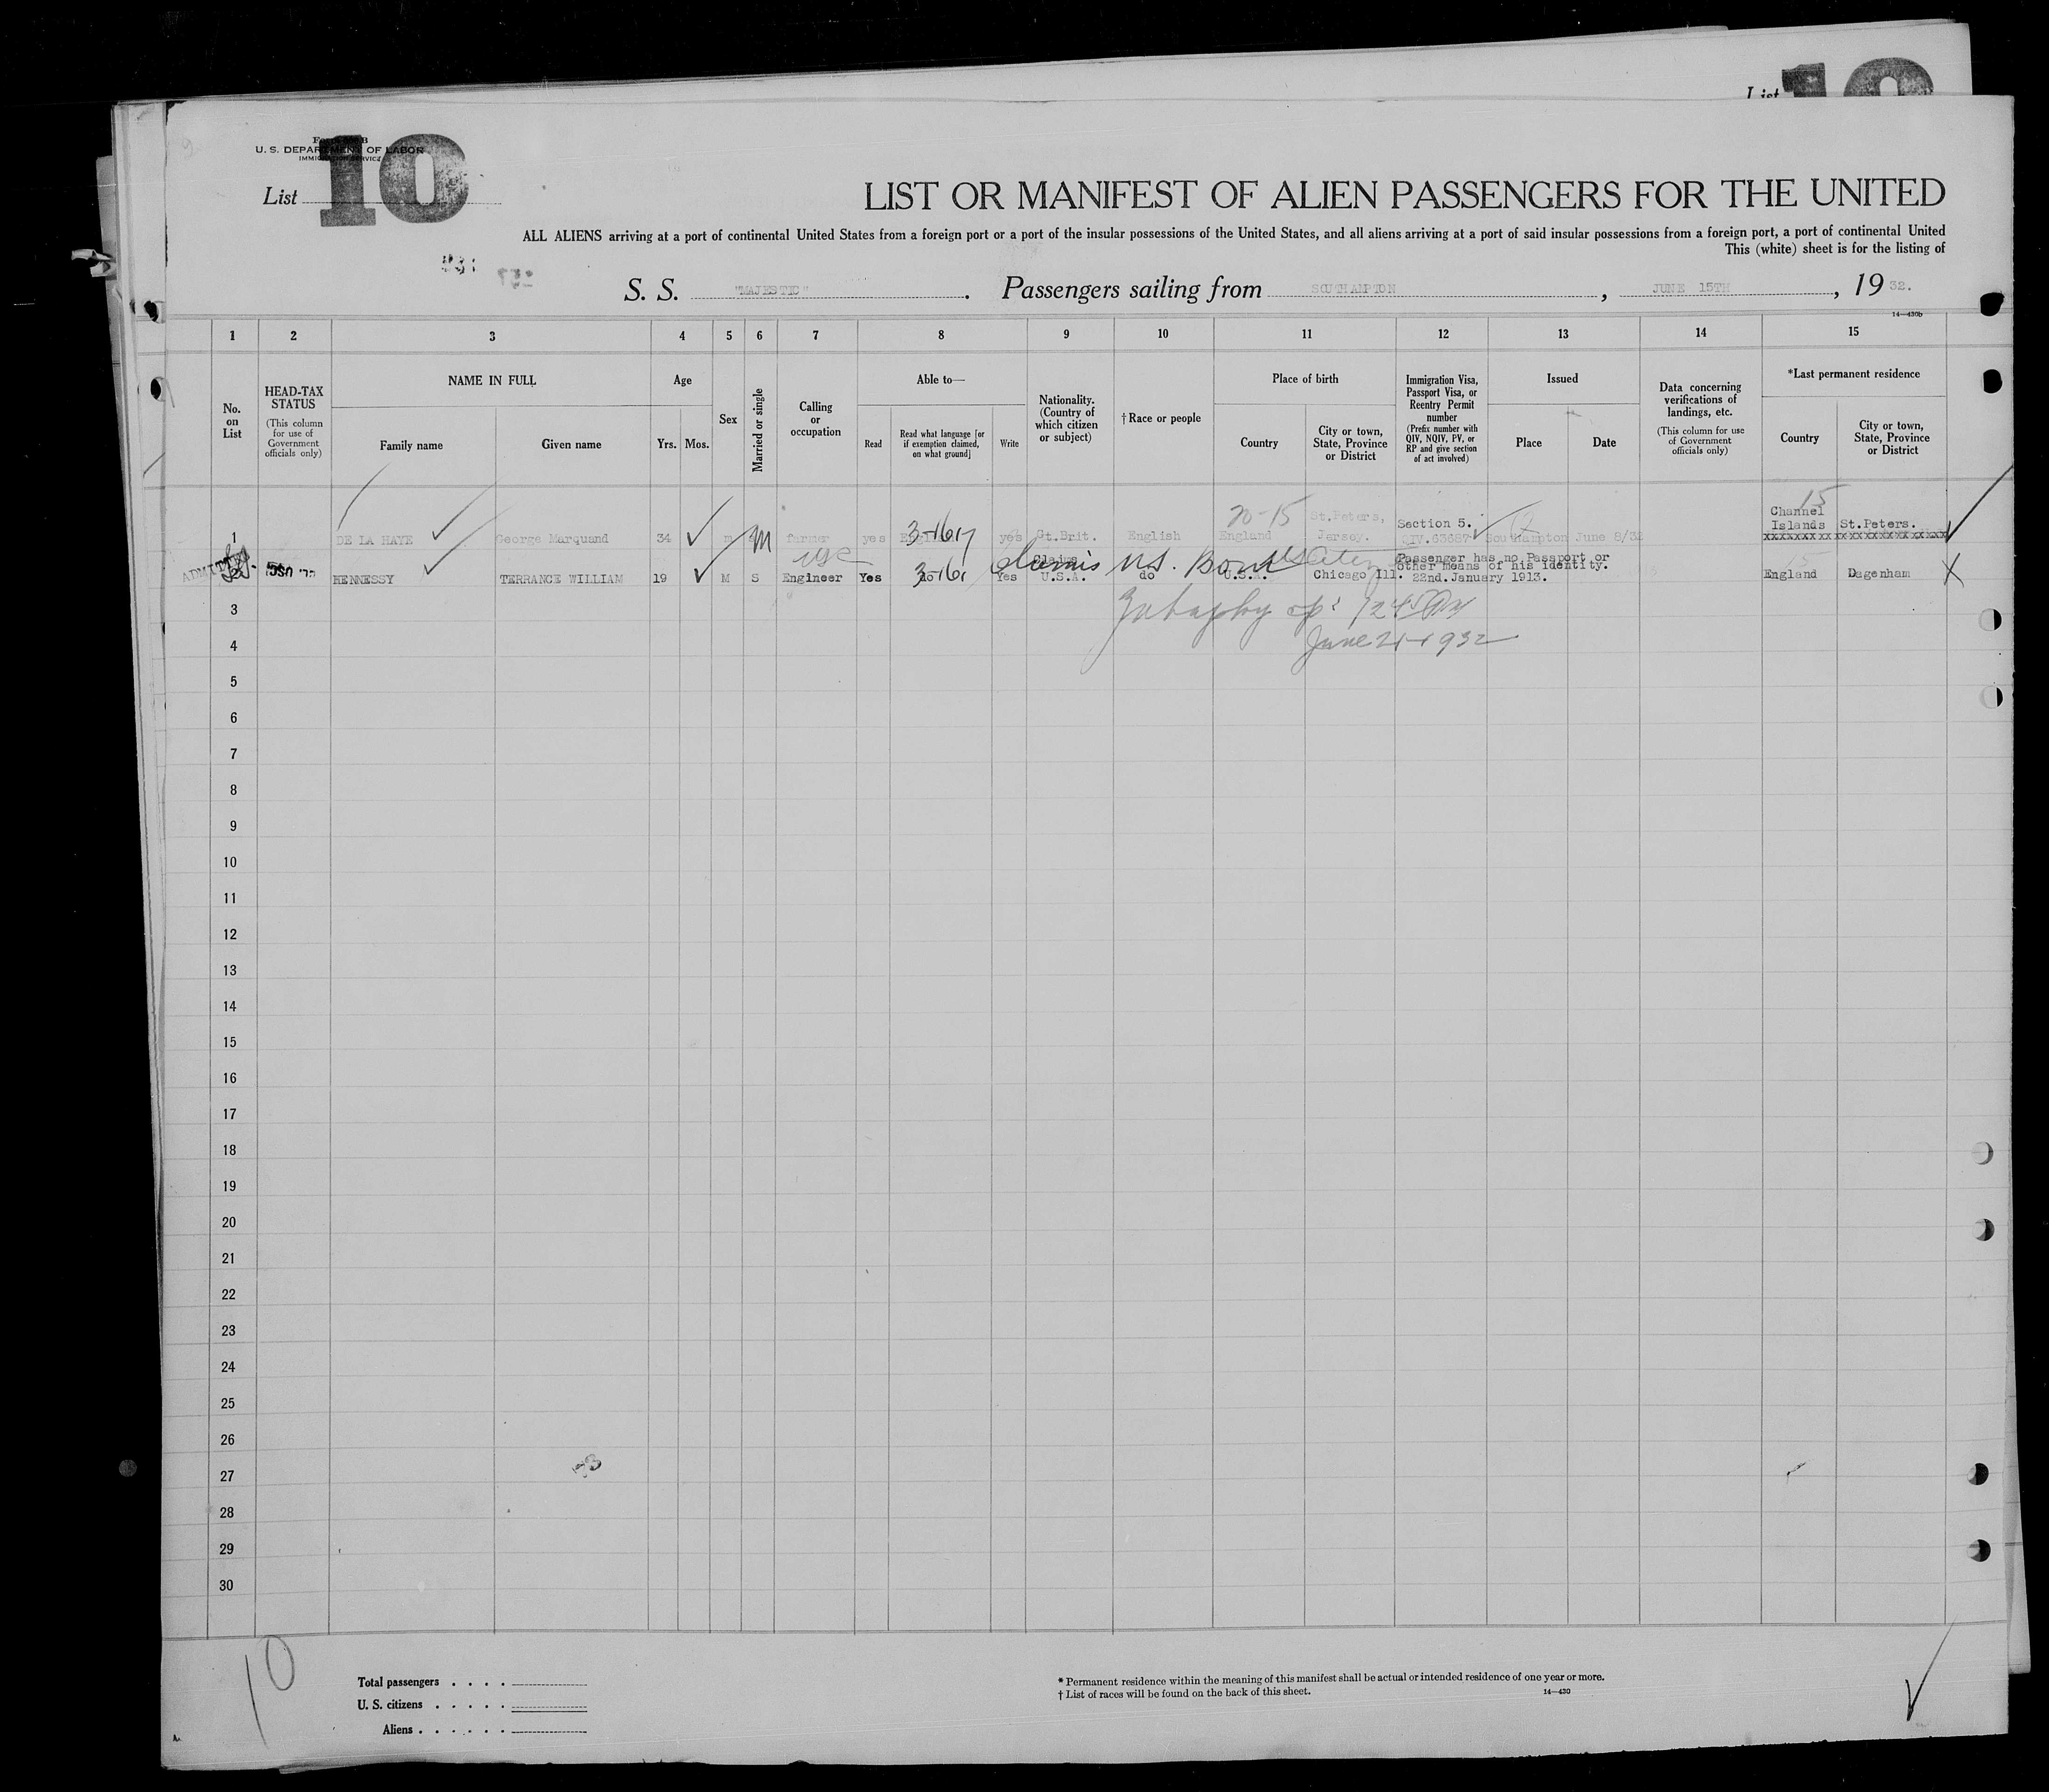 List 10
Form 500 B
U. S. DEPARTMENT OF LABOR
IMMIGRATION SERVICE
List 10
LIST OR MANIFEST OF ALIEN PASSENGERS FOR THE UNITED
ALL ALIENS arriving at a port of continental United States from a foreign port or a port of the insular possessions of the United States, and all aliens arriving at a port of said insular possessions from a foreign port, a port of continental United
This (white) sheet is for the listing of
S. S. "MAJESTIC". Passengers sailing from SOUTHAMPTON, JUNE 15TH, 1932.
14—430b
1 2 3 4 5 6 7 8 9 10 11 12 13 14 15
No. on List
HEAD-TAX STATUS
(This column for use of Government officials only)
NAME IN FULL
Family name
Given name
Age
Yrs.
Mos.
Sex
Married or single
Calling or occupation
Able to—
Read
Read what language [or if exemption claimed, on what ground]
Write
Nationality. (Country of which citizen or subject)
†Race or people
Place of birth
Country
City or town, State, Province or District
Immigration Visa, Passport Visa, or Reentry Permit number
(Prefix number with QIV, NQIV, PV, or RP and give section of act involved)
Issued
Place
Date
Data concerning verifications of landings, etc.
(This column for use of Government officials only)
*Last permanent residence
Country
City or town, State, Province or District
20-15 St.Peters, Section 5. Channel 15
1 DE LA HAYE George Marquand 34 m M farmer yes English 3-1617 yes Gt.Brit. English England Jersey. QIV.63687 Southampton June 8/32 Islands St.Peters.
USC Claims U.S. Born US Citizen Passenger has no Passport or
other means of his identity.
ADMITTED HENNESSY TERRANCE WILLIAM 19 M S Engineer Yes do 3-161 Yes Claims U.S.A. do U.S.A. Chicago Ill. 22nd.January 1913. England 15 Dagenham X
3
4 June 21-1932
5
6
7
8
9
10
11
12
13
14
15
16
17
18
19
20
21
22
23
24
25
26
27
28
29
30
10
Total passengers
U. S. citizens
Aliens
* Permanent residence within the meaning of this manifest shall be actual or intended residence of one year or more.
† List of races will be found on the back of this sheet.
14—430